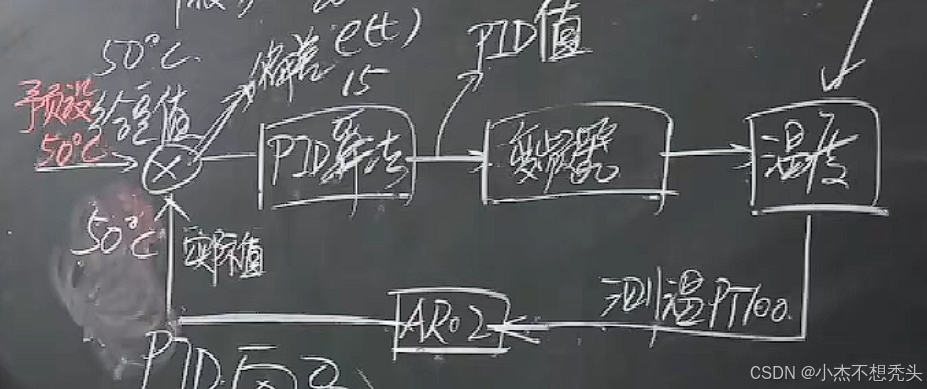 50℃
偏差 e(t)
15
PID值
予负设
给定值
50℃
PID算法
变频器
温度
50℃
实际值
测温PT100
AR02
PID
CSDN @小杰不想秃头